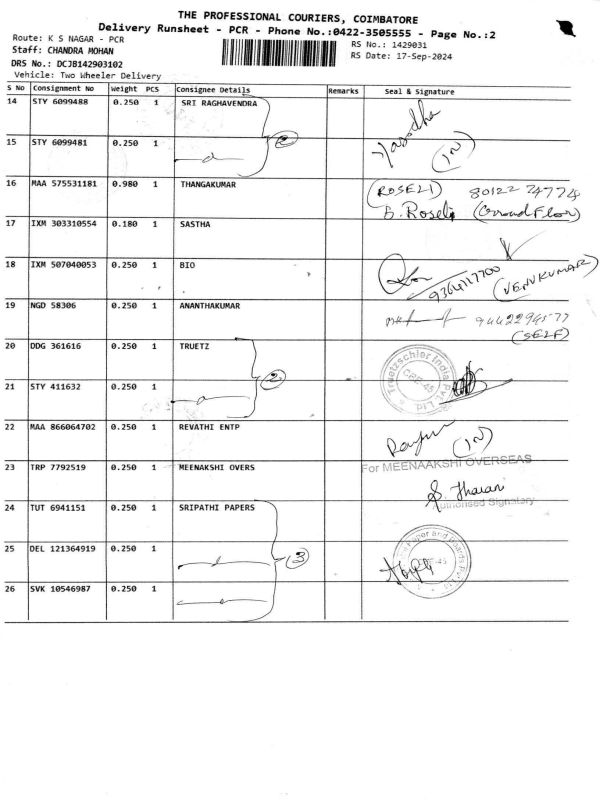 THE PROFESSIONAL COURIERS, COIMBATORE
Delivery Runsheet - PCR - Phone No.:0422-3505555 - Page No.:2
Route: K S NAGAR - PCR
RS No.: 1429031
Staff: CHANDRA MOHAN
RS Date: 17-Sep-2024
DRS No.: DCJB142903102
Vehicle: Two Wheeler Delivery
S No Consignment No Weight PCS Consignee Details Remarks Seal & Signature
14 STY 6099488 0.250 1 SRI RAGHAVENDRA
Yasodha
15 STY 6099481 0.250 1
(2)
(IN)
16 MAA 575531181 0.980 1 THANGAKUMAR (ROSELI) 80122 74774
S. Roseli (Ground Floor)
17 IXM 303310554 0.180 1 SASTHA
18 IXM 507040053 0.250 1 BIO
9364117700 (VENUKUMAR)
19 NGD 58306 0.250 1 ANANTHAKUMAR
9442294577
(SELF)
20 DDG 361616 0.250 1 TRUETZ
Truetzschler India Pvt. Ltd.
CBE-45
(2)
21 STY 411632 0.250 1
22 MAA 866064702 0.250 1 REVATHI ENTP
(IN)
23 TRP 7792519 0.250 1 MEENAKSHI OVERS
For MEENAAKSHI OVERSEAS
Authorised Signatory
24 TUT 6941151 0.250 1 SRIPATHI PAPERS
25 DEL 121364919 0.250 1
(3)
Paper and Boards Pvt Ltd
26 SVK 10546987 0.250 1